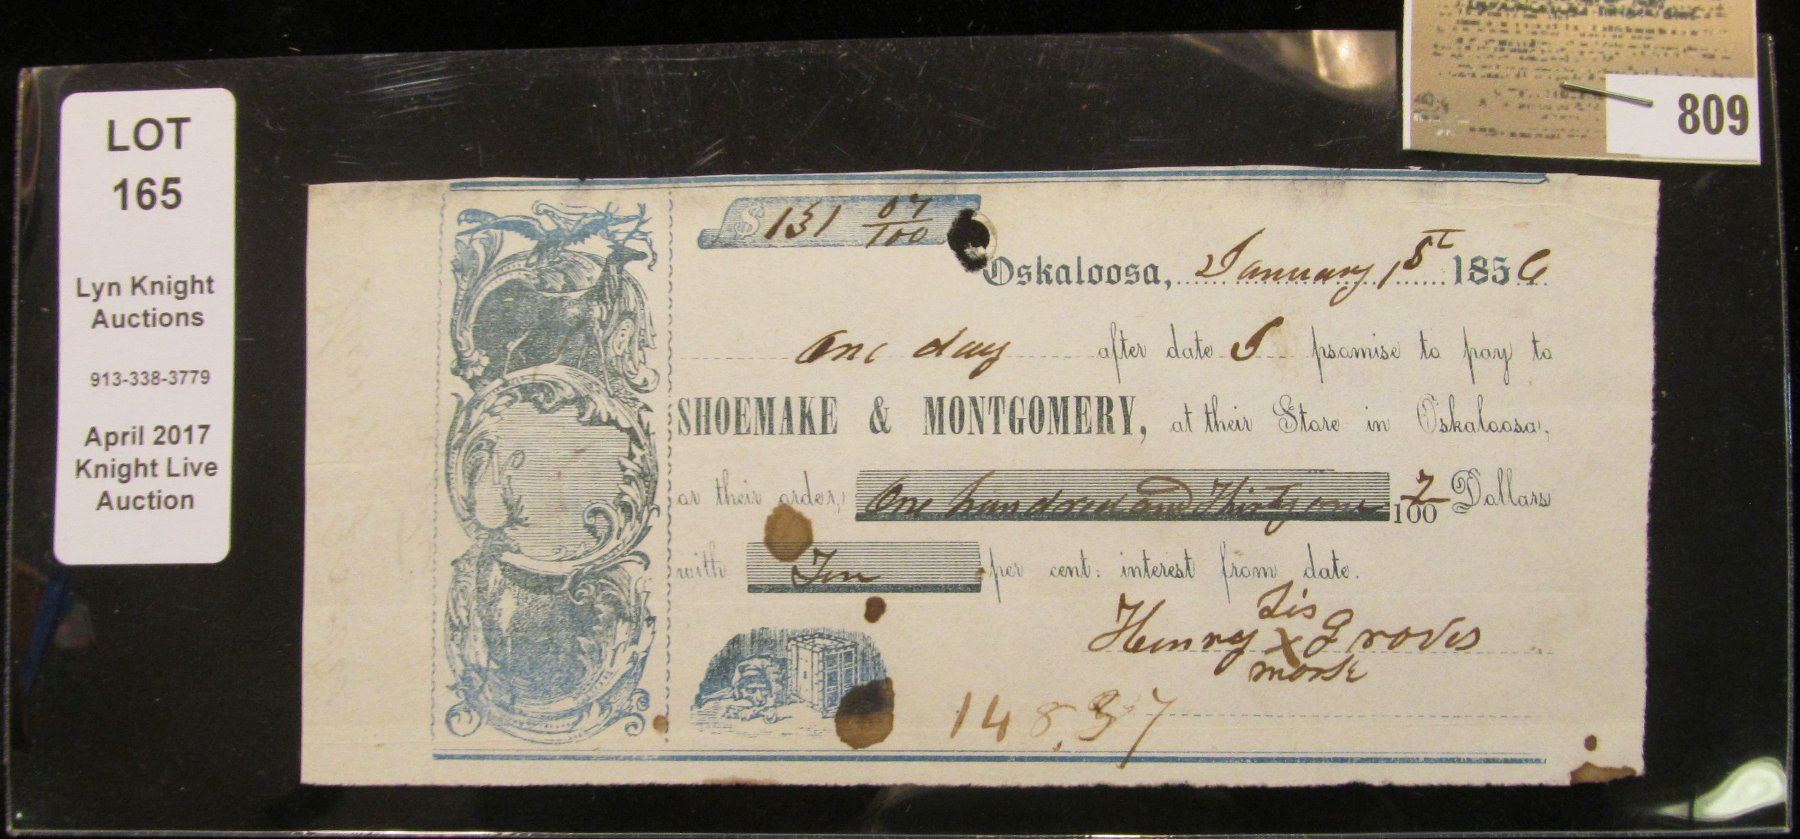 LOT
165
Lyn Knight
Auctions
913-338-3779
April 2017
Knight Live
Auction
809
$ 131 07/100
Oskaloosa, January 1st 1856
One day after date I promise to pay to
SHOEMAKE & MONTGOMERY, at their Store in Oskaloosa,
or their order, One hundred and Thirty one 7/100 Dollars
with Ten per cent: interest from date.
his
Henry x Groves
mark
148.37
No